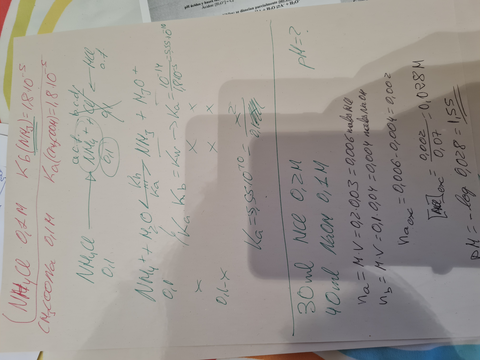 NH4Cl 0,1M Kb(NH3)=1,8·10^-5
CH3COONa 0,1M Ka(CH3COOH)=1,8·10^-5
NH4Cl → NH4+ + Cl-
0,1 0,1
NH4+ + H2O ⇌ NH3 + H3O+
Kb
Ka
0,1
x x x
0,1-x
Ka·Kb=Kw → Ka = 10^-14 / 1,8·10^-5 = 5,55·10^-10
Ka=5,55·10^-10 = x²
30ml HCl 0,2M
40ml NaOH 0,1M pH=?
na=M·V=0,2·0,03=0,006
nb=M·V=0,1·0,04=0,004
na exc = 0,006-0,004=0,002
[H+]exc = 0,002 / 0,07 = 0,028M
pH = -log 0,028 = 1,55